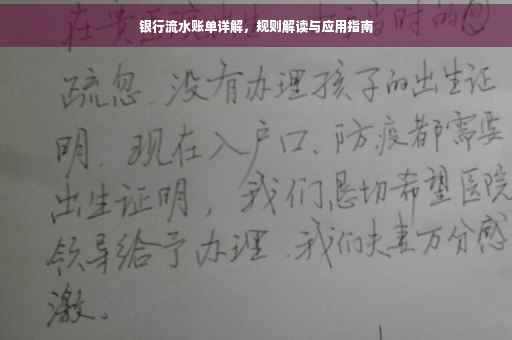 银行流水账单详解，规则解读与应用指南
疏忽、没有办理孩子的出生证
明、现在入户口、防疫都需要
出生证明，我们恳切希望医院
领导给予办理、我们夫妻万分感
激。